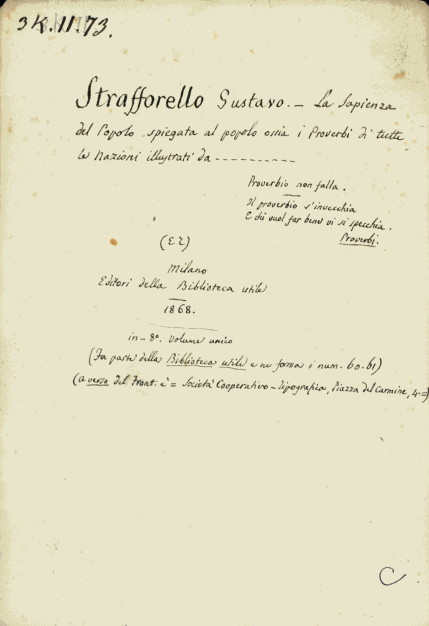 3K.11.73.
Strafforello Gustavo. — La Sapienza
del Popolo spiegata al popolo ossia i Proverbi di tutte
le Nazioni illustrati da ----------
Proverbio non falla.
Il proverbio s'invecchia
E chi vuol far bene vi si specchia.
Proverbi.
Milano
Editori della Biblioteca utile
1868.
in-8º. Volume unico
(Fa parte della Biblioteca utile e ne forma i num. 60.61)
(a verso del Front. è = Società Cooperativo-Tipografica, Piazza del Carmine, 4.=)
C